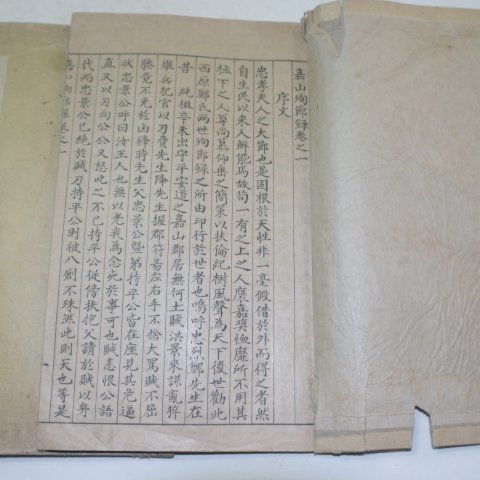 嘉山殉節錄卷之一
序文
忠孝夫人之大節也是固根於天性非一毫假借於外而得之者然
自生民以來人鮮能焉故苟一有之上之人褒嘉奬恤靡所不用其
極下之人尊尚慕仰集之簡策以扶倫紀樹風聲為天下後世勸此
西原鄭氏兩世殉節錄之所由印行於世者也嗚呼忠烈鄭先生在
昔 純祖辛未出宰平安道之嘉山郡居無何土賊洪景來謀亂猝
舉兵犯官以刃脅先生降先生握郡符易左右手不捨大罵賊不屈
膝竟不免於凶鋒時先生父忠景公曁弟持平公皆在座見其危逼
狀忠景公呼曰汝王人也無以老我為念死於事可也賊恚恨公語
直又以刃向公公又怒叱之不已持平公從傍扶抱父請於賊以身
代而忠景公已絶於賊刃持平公則被八創不殊然此則天也等是
嘉山殉節錄卷之一